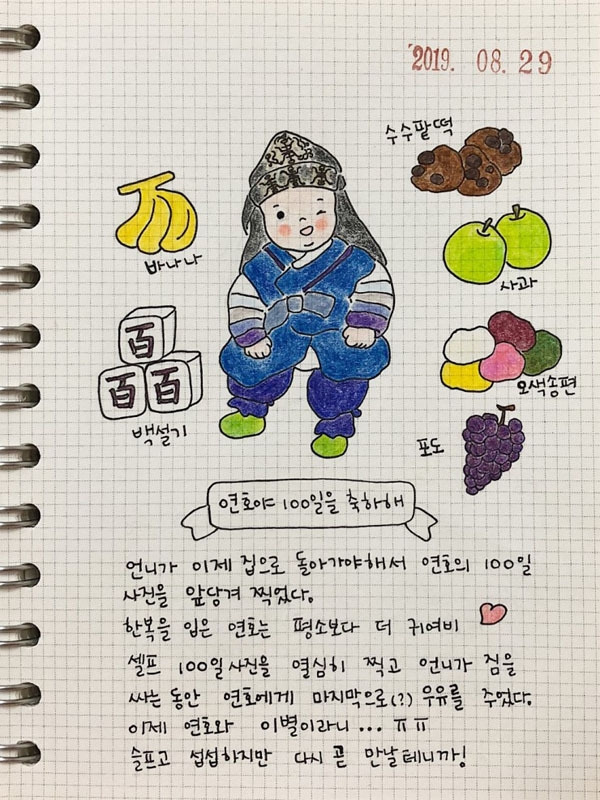 2019. 08. 29
수수팥떡
바나나
사과
百
百 百
백설기
오색송편
포도
연호야 100일을 축하해
언니가 이제 집으로 돌아가야해서 연호의 100일
사진을 앞당겨 찍었다.
한복을 입은 연호는 평소보다 더 귀여비
셀프 100일사진을 열심히 찍고 언니가 짐을
싸는 동안 연호에게 마지막으로(?) 우유를 주었다.
이제 연호와 이별이라니... ㅠㅠ
슬프고 섭섭하지만 다시 곧 만날테니까!